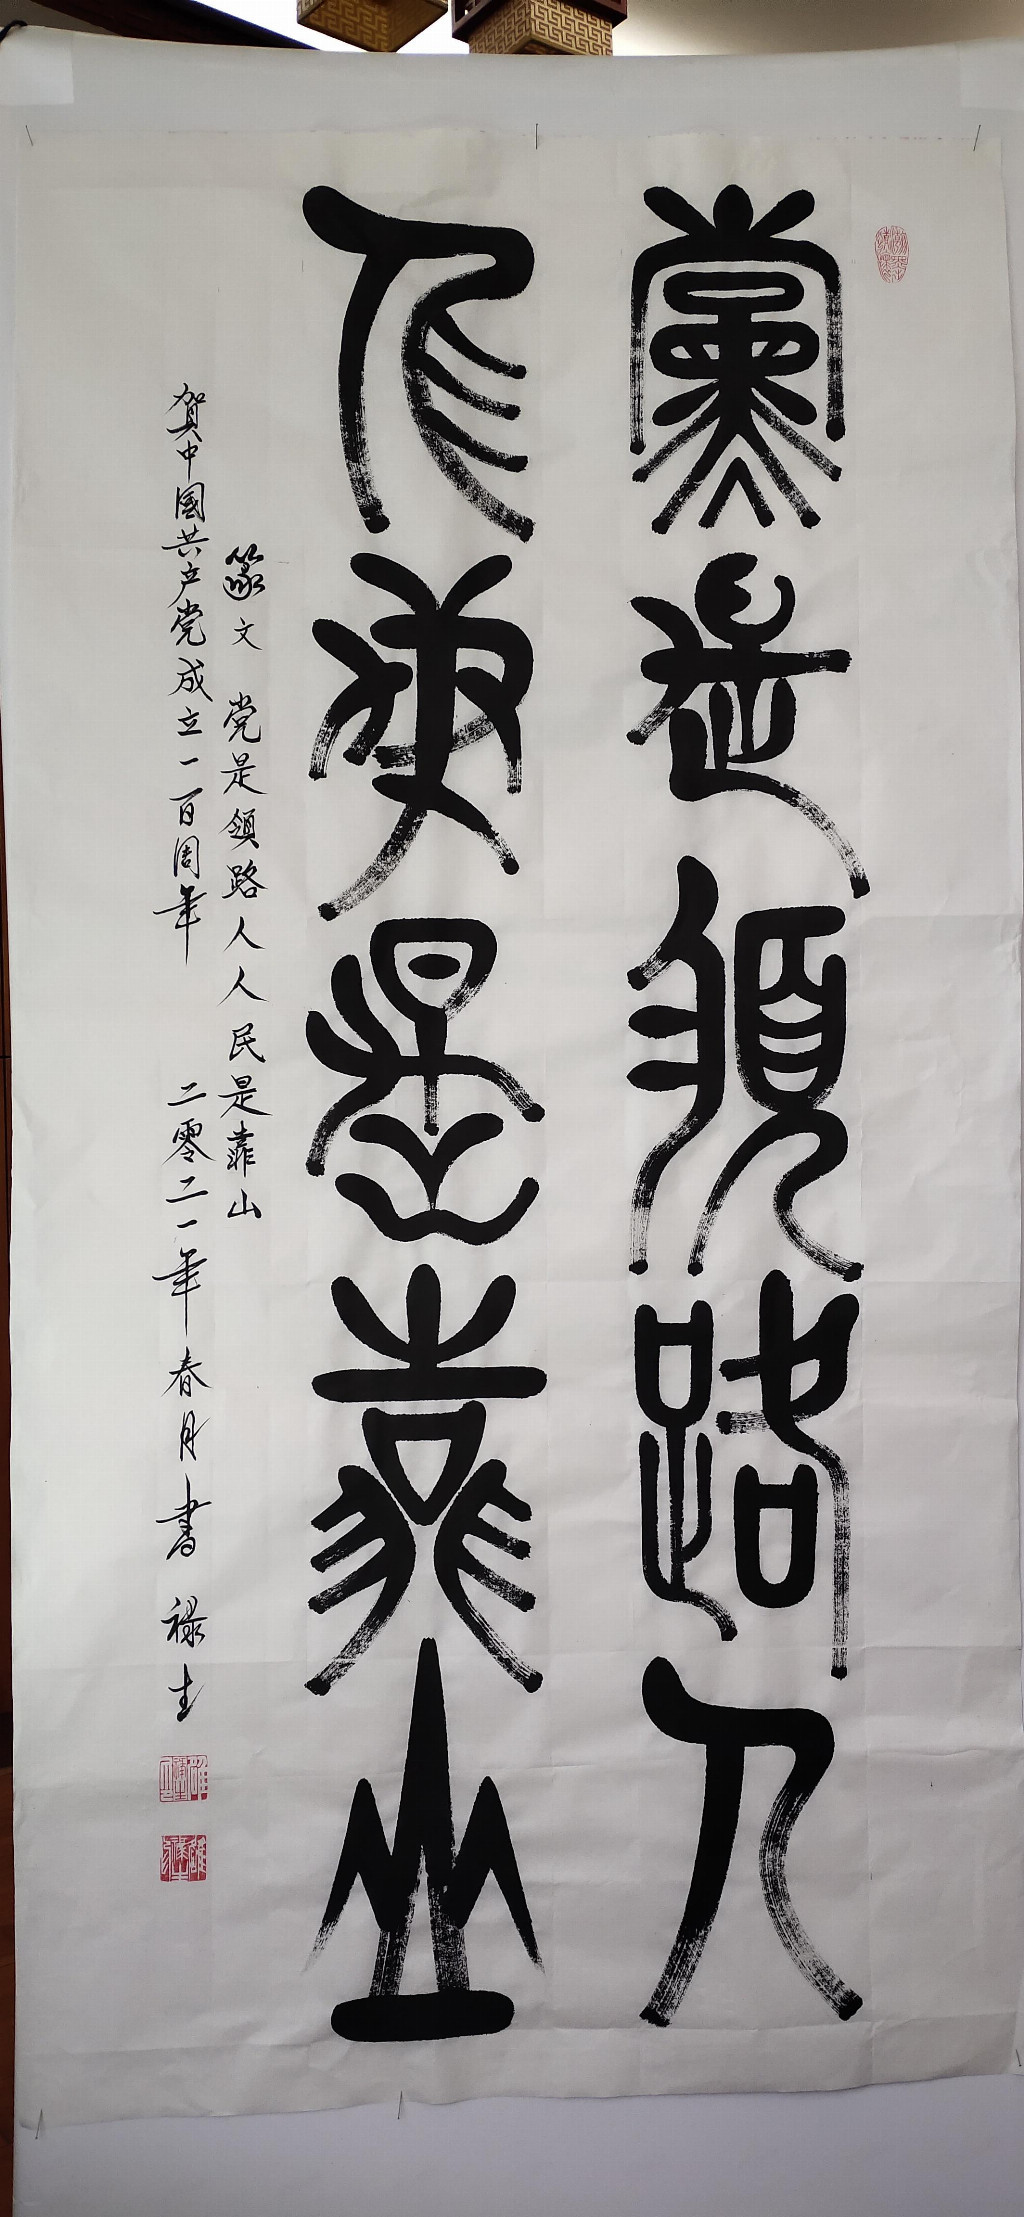 黨是領路人
人民是靠山
篆文 党是領路人人民是靠山
贺中国共产党成立一百周年 二零二一年春月书 禄生